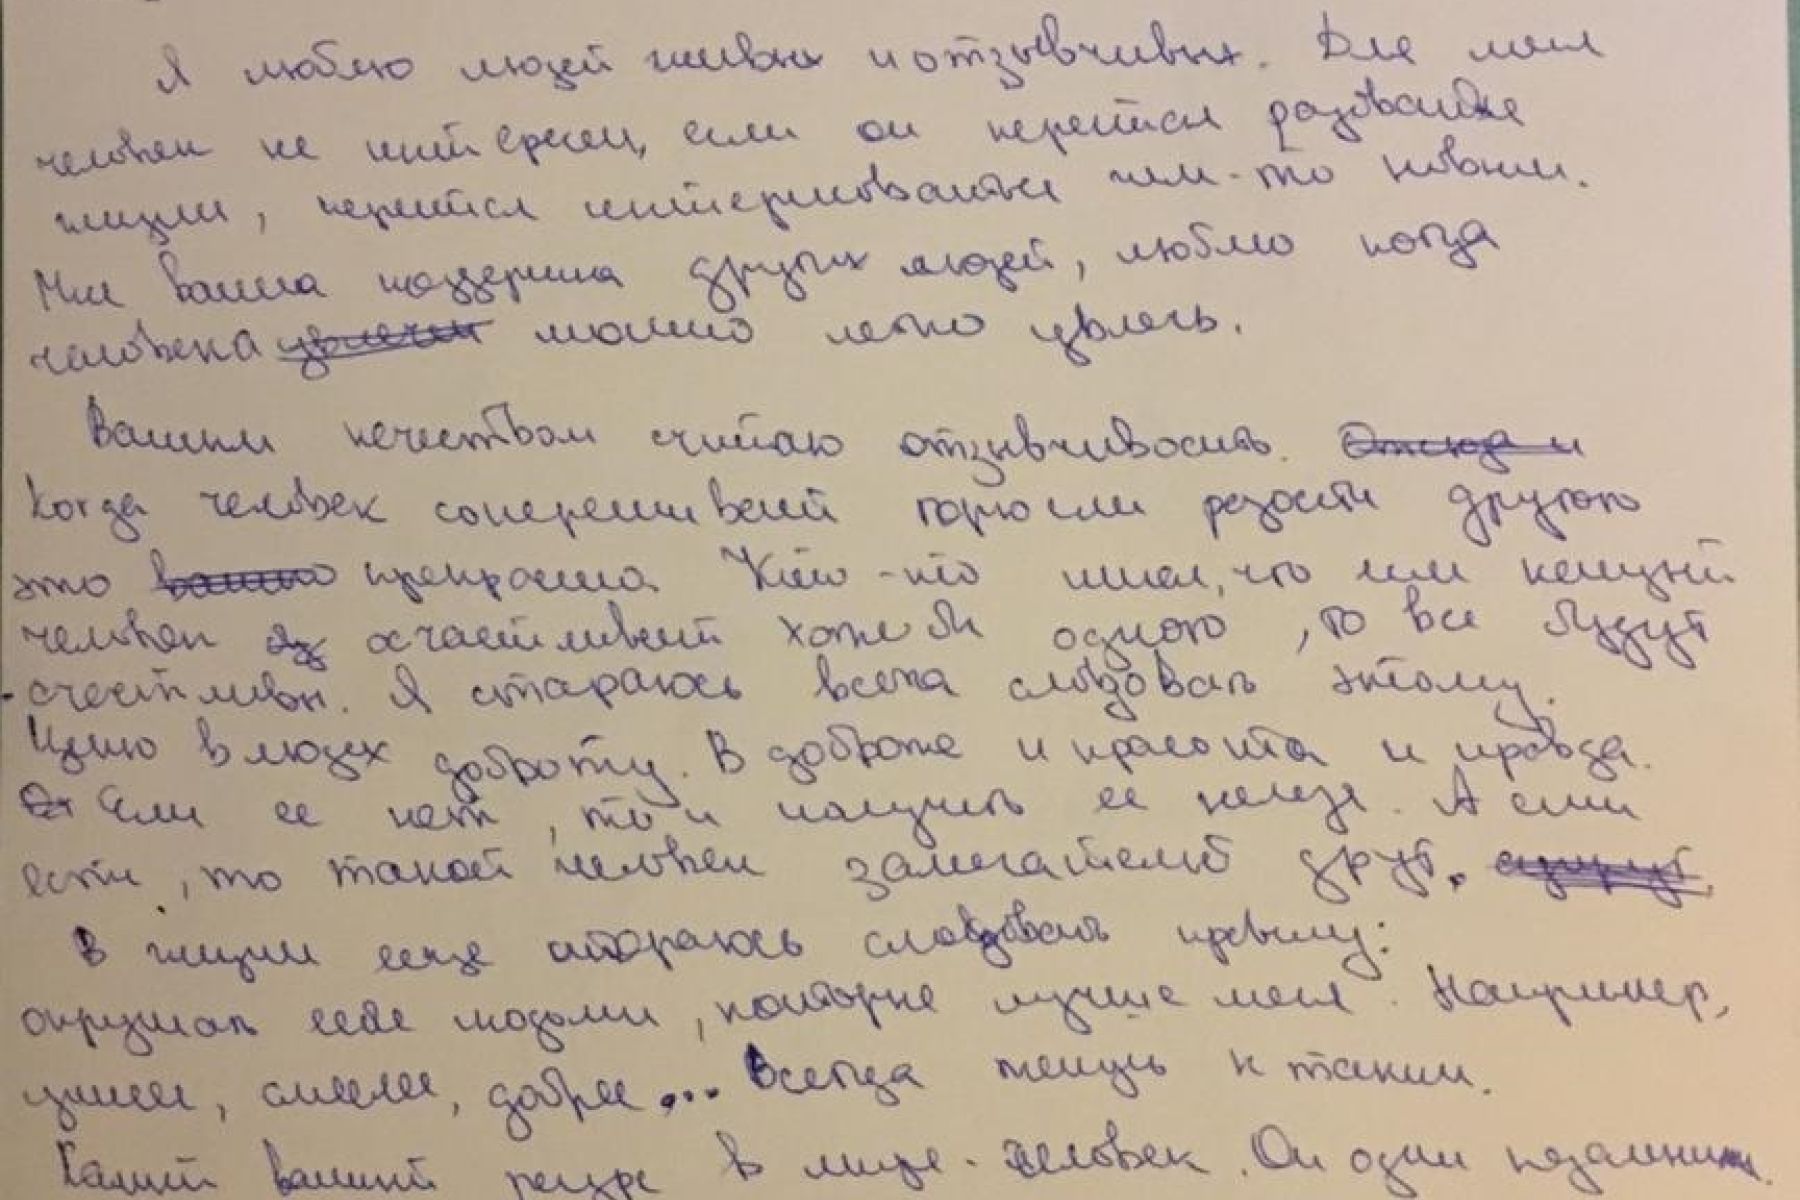 Я люблю людей живых и отзывчивых. Для меня
человек не интересен, если он перестал радоваться
жизни, перестал интересоваться чем-то новым.
Мне важна поддержка других людей, люблю когда
человека увлечен можно легко увлечь.
Важным качеством считаю отзывчивость.
Когда человек сопереживает горю или радости другого
это важно прекрасно. Кто-то писал, что если каждый
человек осчастливит хотя бы одного, то все будут
счастливы. Я стараюсь всегда следовать этому.
Ценю в людях доброту. В доброте и красота и правда.
Если ее нет, то и получить ее нельзя. А если
есть, то такой человек замечательный друг.
В жизни еще стараюсь следовать правилу:
окружать себя людьми, которые лучше меня. Например,
умнее, смелее, добрее... Всегда тянусь к таким.
Самый важный ресурс в мире - человек. Он один незаменим.